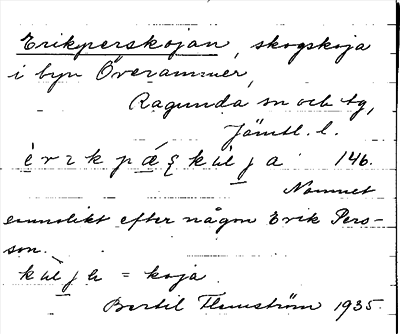 Erikperskojan, skogskoja
i byn Överammer,
Ragunda sn och tg,
Jämtl. l.
146.
Namnet
sannolikt efter någon Erik Pers-
son.
= koja.
Bertil Flemström 1935.